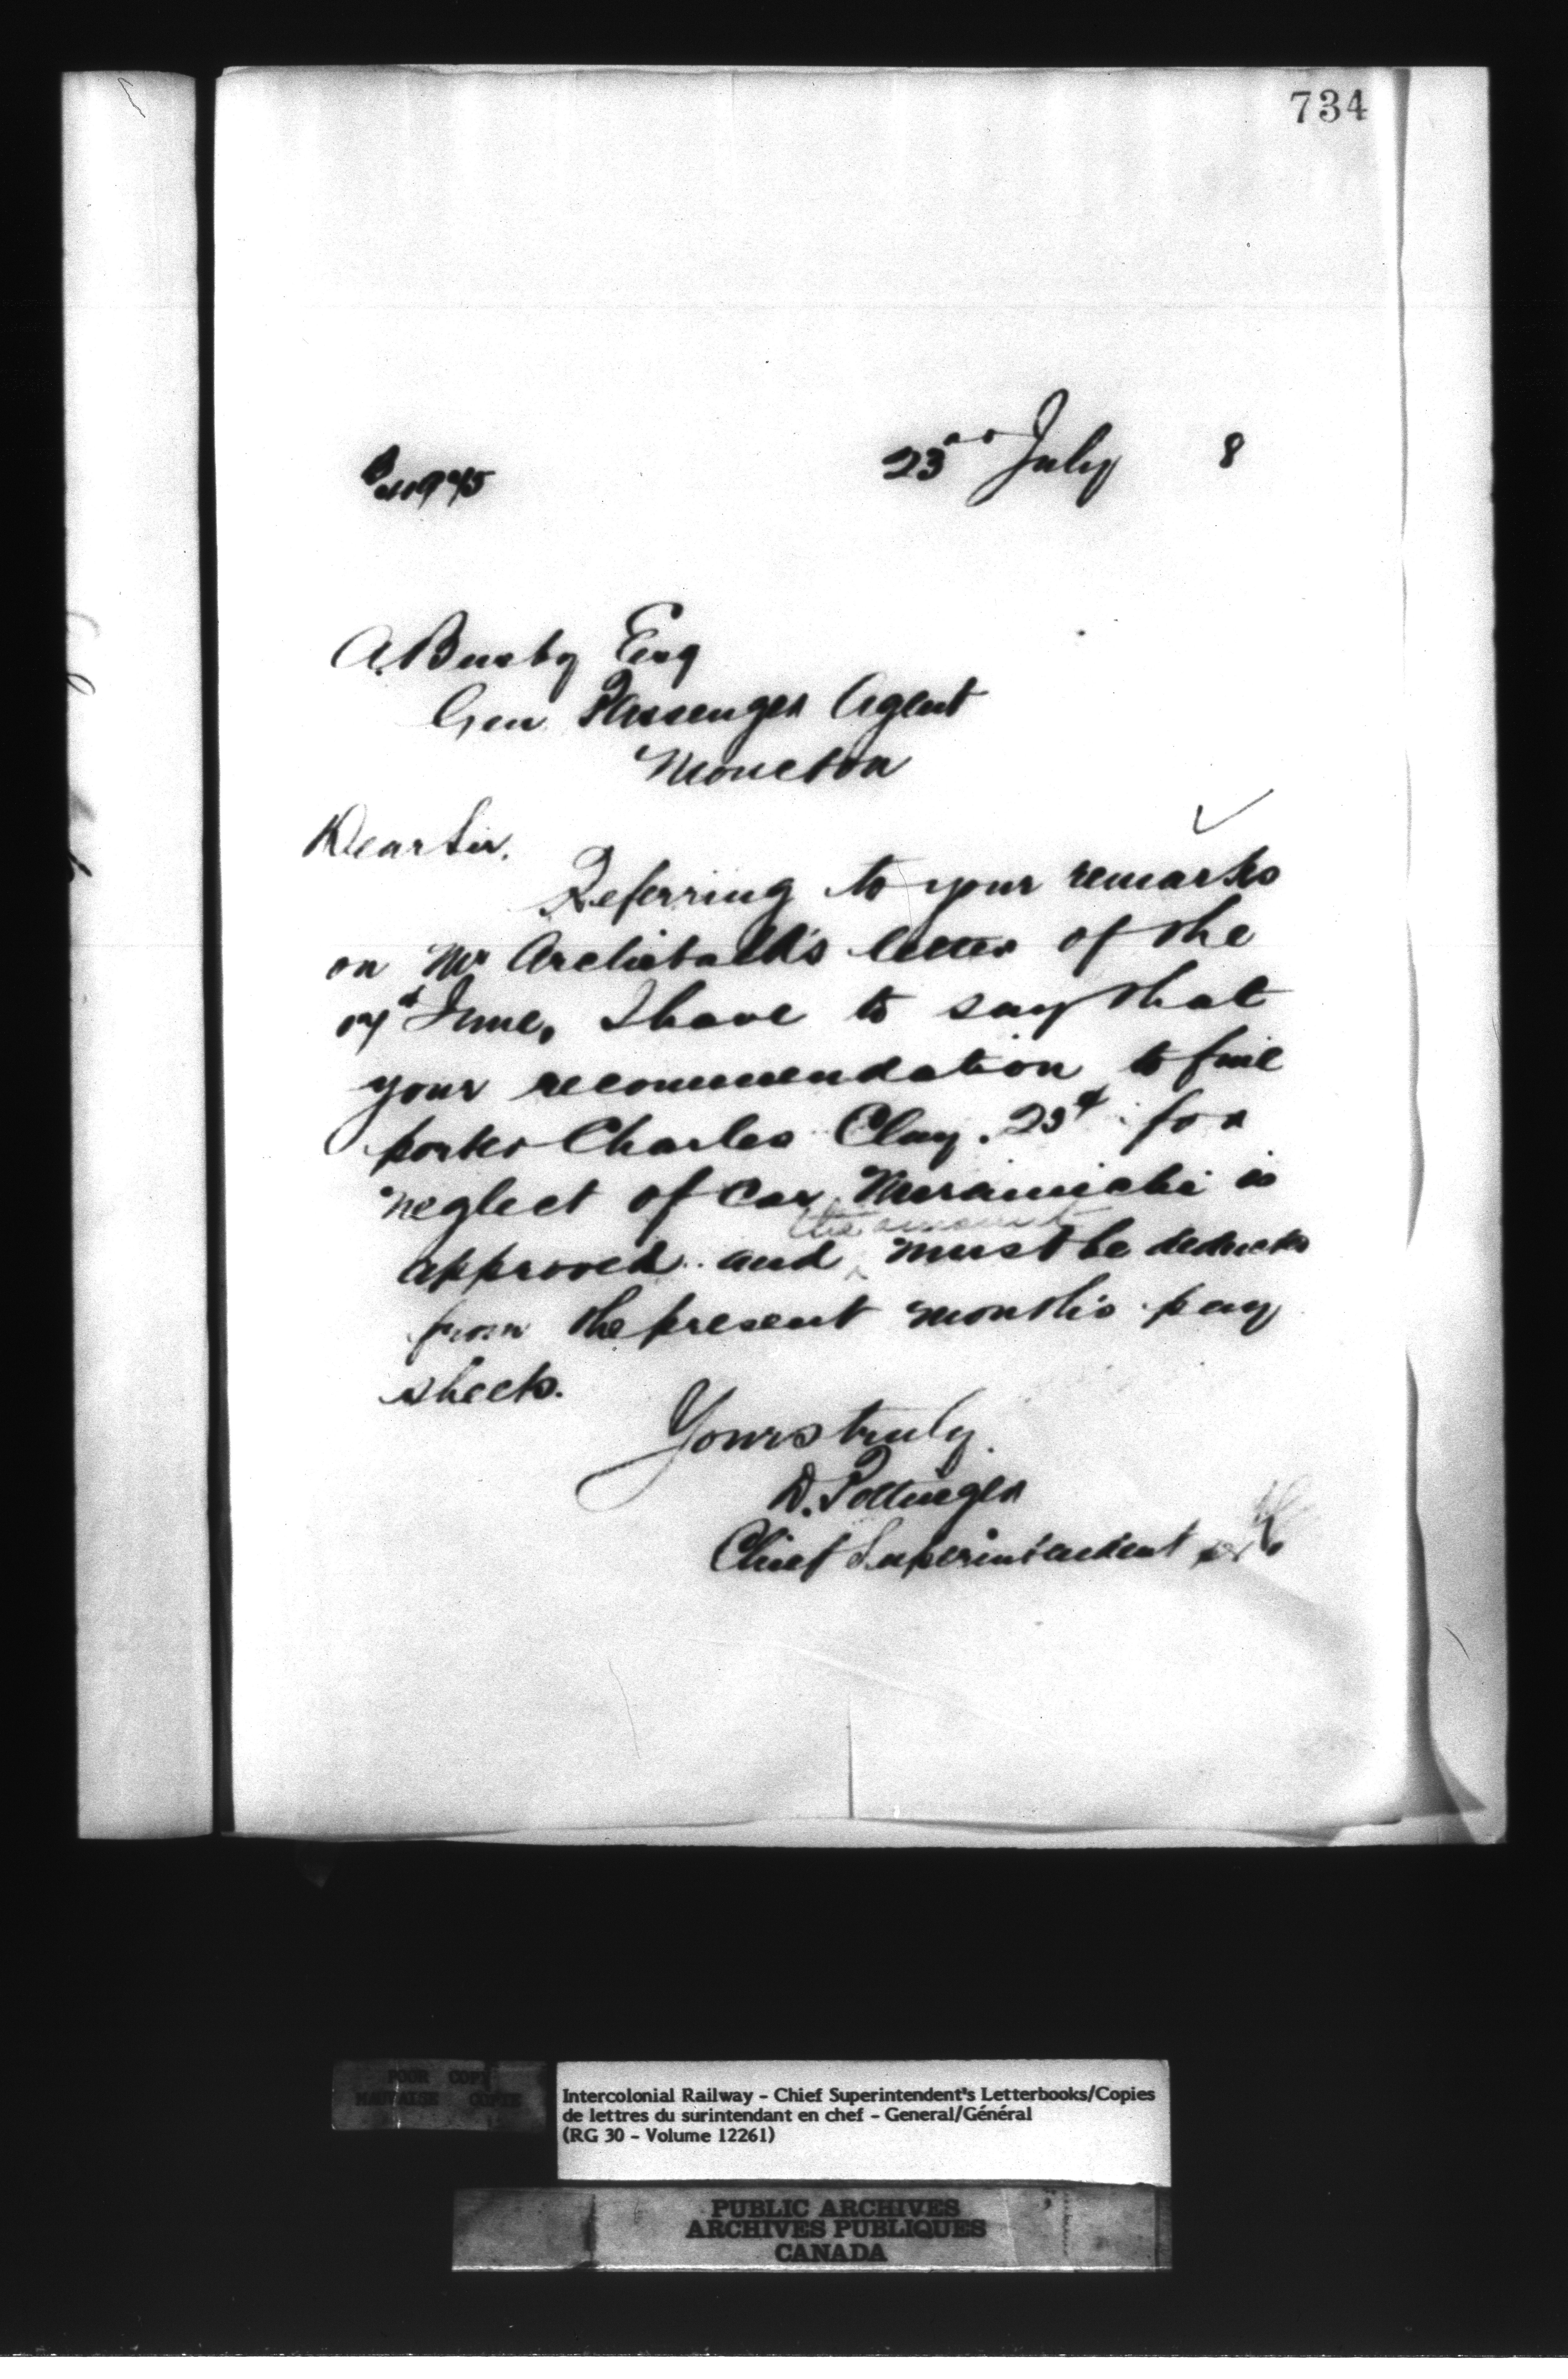 734
23rd July 8
A. Busby Esq
Gen Passenger Agent
Moncton
Dear Sir.
Referring to your remarks
on Mr Archibald's letter of the
June, I have to say that
your recommendation to fine
porter Charles Clay. for
neglect of Car Miramichi is
the amount
approved and ^ must be deducted
from the present month's pay
sheets.
Yours truly.
D. Pottinger
Chief Superintendent
POOR COPY
MAUVAISE COPIE
Intercolonial Railway - Chief Superintendent's Letterbooks/Copies
de lettres du surintendant en chef - General/Général
(RG 30 - Volume 12261)
PUBLIC ARCHIVES
ARCHIVES PUBLIQUES
CANADA